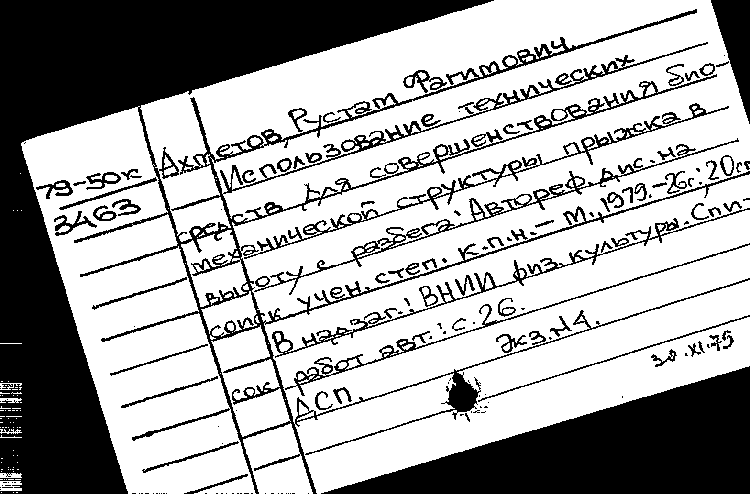 79-50к
3463
Ахметов, Рустам Фагимович.
Использование технических
средств для совершенствования био-
механической структуры прыжка в
высоту с разбега: Автореф. дис. на
соиск. учен. степ. к.п.н.— М., 1979.-26с.; 20см
В надзаг.: ВНИИ физ. культуры. Спи-
сок работ авт.: с. 26.
ДСП. Экз.N4.
30.XI.79